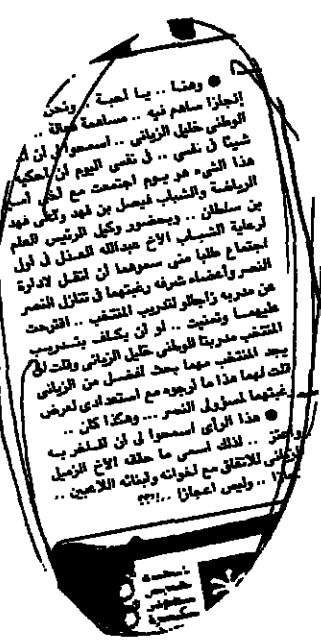 ● وهنا .. يا أحبة .. ونحن
إنجازا ساهم فيه .. مساهمة فعالة ..
الوطني خليل الزياني .. اسمحوا لي أن
شيئا في نفسي .. في نفسي اليوم أن أحكيه
هذا الشيء هو يوم اجتمعت مع أخي
الرياضة والشباب فيصل بن فهد وأخي فهد
بن سلطان .. وبحضور وكيل الرئيس العام
لرعاية الشباب الأخ عبدالله العذل في أول
اجتماع طلبا مني سموهما أن أنقل لادارة
النصر وأعضاء شرفه رغبتهما في تنازل النصر
عن مدربه زاجالو لتدريب المنتخب .. اقترحت
عليهما وتمنيت .. لو أن يكلف بتدريب
المنتخب مدربنا الوطني خليل الزياني وقلت لن
يجد المنتخب مهما بحث أفضل من الزياني
قلت لهما هذا ما أرجوه مع استعدادي لعرض
رغبتهما لمسؤولي النصر ... وهكذا كان ..
● هذا الرأي اسمحوا لي أن أفاخر به
وأعتز .. لذلك أسمي ما حققه الأخ الزميل
الزياني بالاتفاق مع اخوانه وأبنائه اللاعبين ..
.. وليس اعجازا ..